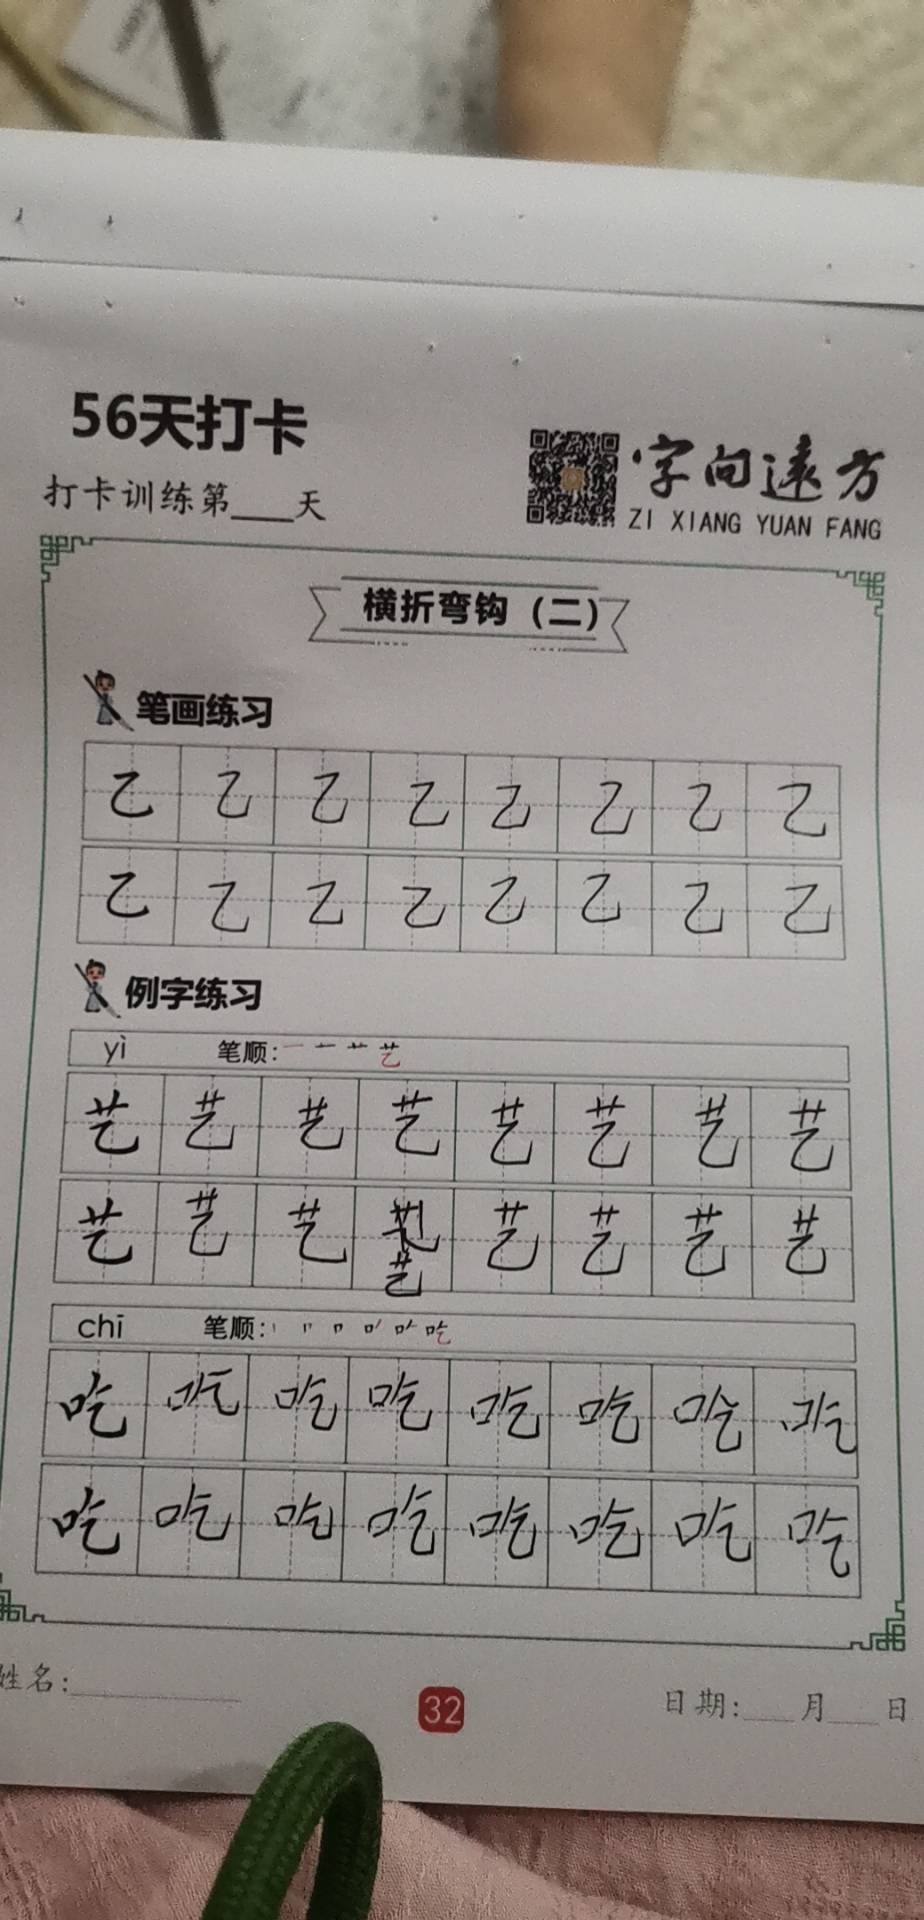 56天打卡
打卡训练第___天
字向远方
ZI XIANG YUAN FANG
横折弯钩（二）
笔画练习
乙 乙 乙 乙 乙 乙 乙 乙
乙 乙 乙 乙 乙 乙 乙 乙
例字练习
yì 笔顺：一 艹 艺
艺 艺 艺 艺 艺 艺 艺 艺
艺 艺 艺 艺 艺 艺 艺 艺 艺
chī 笔顺：丨 口 吃
吃 吃 吃 吃 吃 吃 吃 吃
吃 吃 吃 吃 吃 吃 吃 吃
姓名：___ 32 日期：___月___日